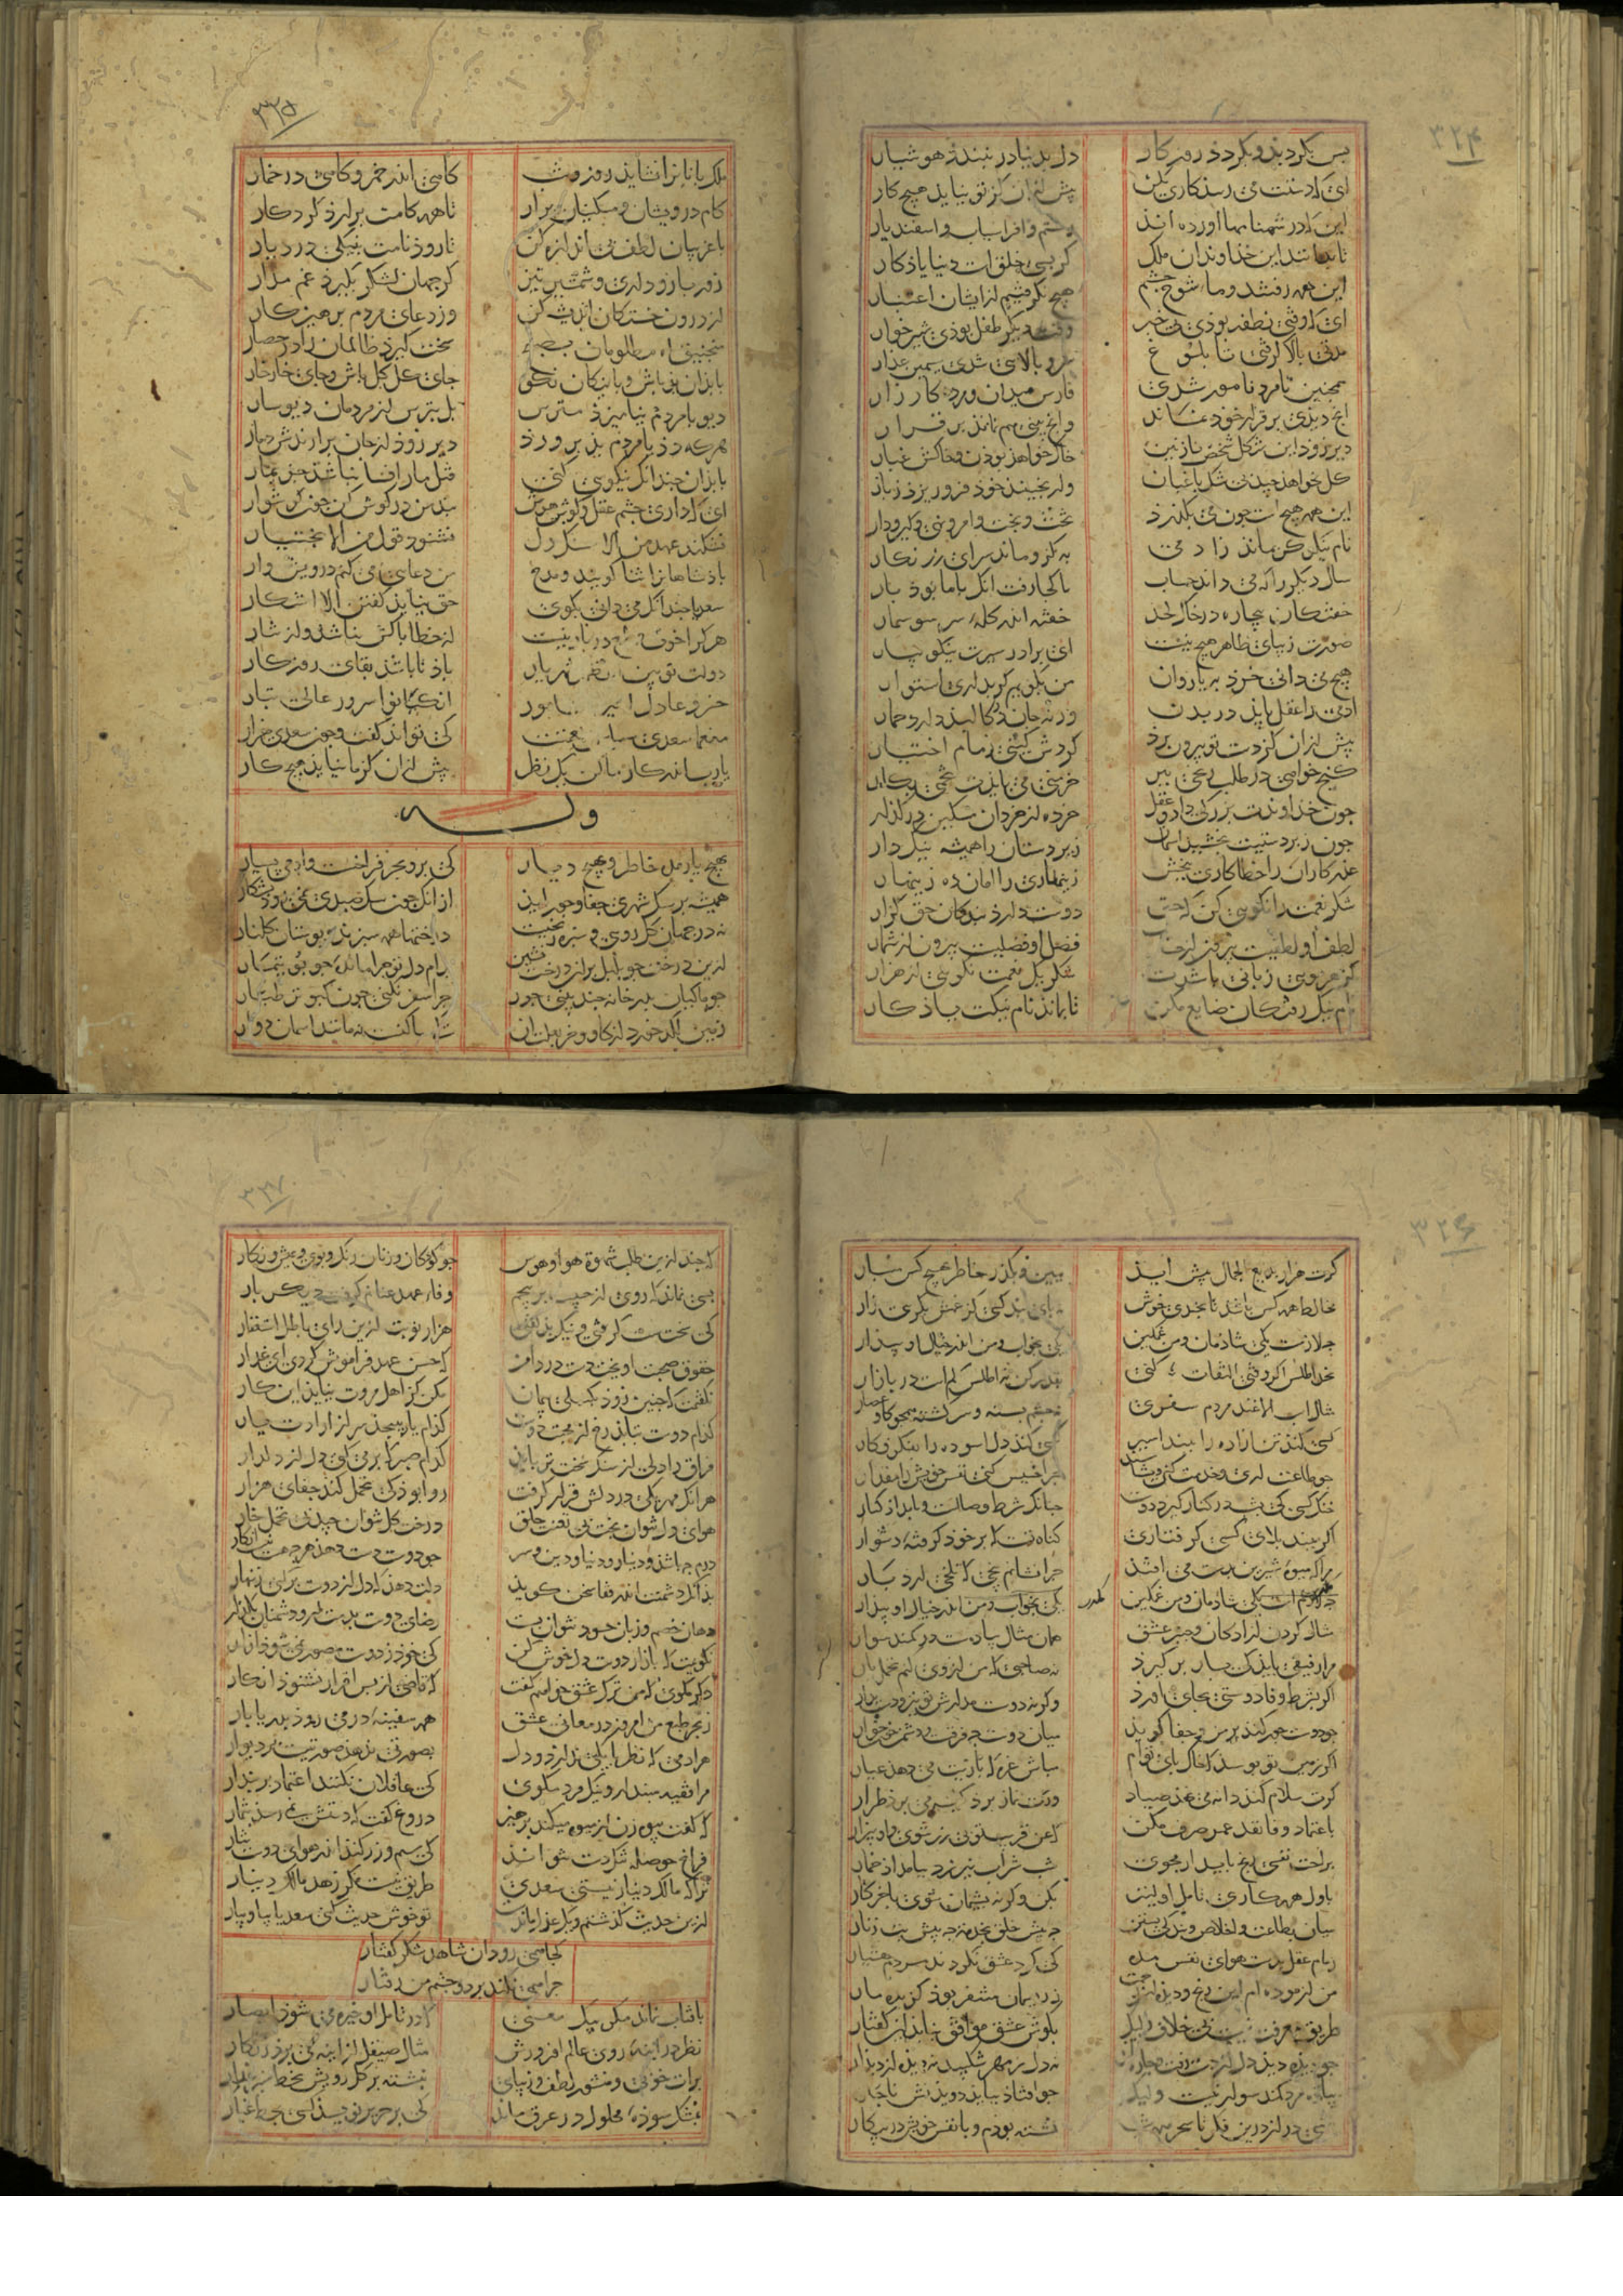 ۳۲۴
بس بکردیذ و بکردذ روزکار دل بدنیا در نبندذ هوشیار
ای که دستت می رسذ کاری بکن پیش ازان کز تو نیایذ هیچ کار
این که در شهنامها اورده انذ رستم و افراسیاب و اسفندیار
تا بدانند این خذاوندان ملک کز بسی خلق است دنیا یاذکار
این همه رفتند و ما شوخ چشم هیچ نکرفتیم از ایشان اعتبار
ای که وقتی نطفه بوذی بی خبر وقت دیکر طفل بوذی شیرخوار
مدتی بالا کرفتی تا بلوغ سرو بالای شذی سیمین عذار
همچنین تا مرد نام‌ور شذی فارس میدان و مرد کارزار
انچ دیذی بر قرار خوذ نماند وانچ بینی هم نمانذ بر قرار
دیر و زود این شکل و شخص نازنین خاک خواهذ بوذن و خاکش غبار
کل بخواهذ چیذ بی شک باغبان ور نچینذ خوذ فرو ریزذ ز بار
این همه هیچ است چون می بکذرذ تخت و بخت و امر و نهی و کیر و دار
نام نیکو کر بمانذ زادمی به کزو ماند سرای زرنکار
سال دیکر را که می داند حساب یا کجا رفت انک با ما بوذ بار
خفتکان بیچاره در خاک لحد خفته اندر کله سر سوسمار
صورت زیبای ظاهر هیچ نیست ای برادر سیرت نیکو بیار
هیچ می دانی خرد به یا روان من بکویم کر بداری استوار
ادمی را عقل بایذ در بدن ورنه جان در کالبذ دارد حمار
پیش ازان کز دست تو بیرون برذ کردش کیتی زمام اختیار
کنج خواهی در طلب رنجی ببر خرمنی می بایذت تخمی بکار
چون خذاوندت بزرکی داذ و عقل خرده از خردان مسکین در کذار
چون زبردستیت بخشیذ اسمان زیردستان را همیشه نیک دار
عذرکاران را خطاکاری ببخش زینهاری را امان ده زینهار
شکر نعمت را نکویی کن که حق دوست دارذ بندکان حق کزار
لطف او لطفیست بیرون از حساب فضل او فضلیست بیرون از شمار
کر بهر مویی زبانی باشدت شکر یک نعمت نکویی از هزار
نام نیک رفتکان ضایع مکن تا بماند نام نیکت یاذکار
۳۲۵
ملک بانانرا نشایذ روز و شب کاهی اندر خمر و کاهی در خمار
کام درویشان و مسکینان برار تا همه کامت برارذ کردکار
با غریبان لطف بی اندازه کن تا روذ نامت بنیکی در دیار
زور بازو داری و شمشیر تیز کر جهان لشکر بکیرذ غم مدار
از درون خستکان اندیشه کن وز دعای مردم پرهیزکار
منجنیق اه مظلومان بصبح سخت کیرذ ظالمان را در حصار
با بذان بذ باش و با نیکان نکو جای کل کل باش و جای خار خار
دیو با مردم نیامیزذ مترس بل بترس از مردمان دیوسار
هرکه دذ یا مردم بذ پرورذ دیر و زوذ از جان برارندش دمار
با بذان چندانک نیکویی کنی قتل مار افسا نباشد جز بمار
ای که داری چشم عقل و کوش هوش پند من در کوش کن چون کوشوار
نشکند عهد من الا سنکدل نشنود قول من الا بختیار
پاذشاهانرا ثنا کویند و مدح من دعایی می کنم درویش وار
سعدیا چندانک می دانی بکوی حق نبایذ کفتن الا اشکار
هرکرا خوف و طمع در بار نیست از خطا باکش نباشذ وز تتار
دولت نویین اعظم شهریار باذ تا باشذ بقای روزکار
خسرو عادل امیر نامور انکیانو سرور عالی تبار
منعما سعدی سپاس نعمتت کی تواند کفت و چون سعدی هزار
یا رسانذ کار ما کن یک نظر پیش ازان کز ما نیایذ هیچ کار
وله
بهیچ یار مده خاطر و بهیچ دیار کی بر و بحر فراخست و ادمی بسیار
همیشه بر سک شهری جفا و جور ایذ از انک چون سک صیدی نمی روذ بشکار
نه در جهان کل رویی و سبزه زنخیست درختها همه سبزند و بوستان کلنار
ازین درخت چو بلبل بران درخت نشین بدام دل تو چرا مانده چو بوتیمار
چو ماکیان بدر خانه چند بینی جور چرا سفر نکنی چون کبوتر طیار
زمین لکد خورد از کاو و خر بعلت ان که ساکنست نه مانند اسمان دوار
۳۲۶
کرت هزار بدیع الجمال پیش ایذ ببین و بکذر و خاطر بهیچ کس مسپار
مخالط همه کس باش تا بخندی خوش نه پای بند کسی کز غمش بکریی زار
چه لازمست یکی شاذمان و من غمکین یکی بخواب و من اندر خیال او بیذار
بخذ اطلس اکر وقتی التفات کنی بقدر کن که نه اطلس کم است در بازار
مثال اسب الاغند مردم سفری نه چشم بسته و سرکشته همچو کاو عصار
کسی کند تن ازاده را ببند اسیر کسی کند دل اسوده را بفکر فکار
چو طاعت اری و خدمت کنی و نشناسد چرا خسیس کنی نفس خویش را مقدار
خنک کسی که بشب در کنار کیرد دوست چنانک شرط وصالست و بامداذ کنار
اکر ببند بلای کسی کرفتاری کناه تست که بر خوذ کرفته دشوار
مرا که میوه شیرین بدست می افتذ چرا نشانم بیخی که تلخی ارد بار
چه لازم است یکی شاذمان و من غمکین یکی بخواب و من اندر خیال او بیذار
مکرر
مثال کردن ازادکان و چنبر عشق همان مثال پیاده‌ست در کمند سوار
مرا رفیقی بایذ که بار بر کیرد نه صاحبی که من از وی کنم تحمل بار
اکر بشرط وفا دوستی بجای اورذ وکرنه دوست مدارش تو نیز و دست بدار
چو دوست جور کند بر من و جفا کویذ میان دوست چه فرقست و دشمن خونخوار
اکر زمین تو بوسذ که خاک پای توام مباش غره که بازیت می دهذ عیار
کرت سلام کند دانه می نهذ صیاد ورت نماز برذ کیسه می برذ طرار
باعتماد وفا نقد عمر صرف مکن که عن قریب تو بی زر شوی و او بیزار
براحت نفسی رنج پایدار مجوی شب شراب نیرزد ببامداذ خمار
باول همه کاری تامل اولیتر بکن وکرنه پشیمان شوی باخر کار
میان طاعت و اخلاص و بندکی بستن چه پیش خلق بخدمت چه پیش بت زنار
زمام عقل بدست هوای نفس مده کی کرد عشق نکردند مردم هشیار
من ازموده ام این رنج و دیذه این زحمت ز ریسمان متنفر بوذ کزیده مار
طریق معرفت اینست بی خلاف ولیک بکوش عشق موافق نیایذ این کفتار
چو دیذه دیذ دل از دست رفت و چاره نماند نه دل ز مهر شکیبد نه دیذه از دیذار
پیاده مرد کمند سوار نیست ولیک چو اوفتاذ ببایذ دویذنش ناچار
شبی دراز درین فکر تا سحر همه شب نشسته بوذم و با نفس خویش در پیکار
۳۲۷
که چند ازین طلب شهوة و هوا و هوس چو کوذکان و زنان رنک و بوی و نقش و نکار
بسی نماند که روی از حبیب بر پیچم وفاء عهد عنانم کرفت دیکر بار
کی سخت سست کرفتی و نیک بذ کفتی هزار نوبت ازین رای باطل استغفار
حقوق صحبت اویخت دست در دامن که حسن عهد فراموش کردی ای غدار
نکفتمت که چنین زوذ بکسلی پیمان مکن کز اهل مروت نیایذ این کار
کذام دوست بتابذ رخ از محبت دوست کذام یار بپیچذ سر از ارادت یار
فراق را دلی از سنک سخت تر بایذ کذام صبر که بر می کنی دل از دلدار
هرانک مهر یکی در دلش قرار کرفت روا بوذ کی تحمل کند جفای هزار
هوای دل نتوان پخت بی تعنت خلق درخت کل نتوان چیذ بی تحمل خار
درم چه باشذ و دینار و دنیا و دین و سر چو دوست دست دهذ هرچه هست هیچ انکار
بذانک دشمنت اندر قفا سخن کویذ دلت دهذ که دل از دوست بر کنی زنهار
دهان خصم و زبان حسود نتوان بست رضای دوست بدست ار و دشمنان بکذار
نکویمت که بازار دوست دل خوش کن کی خوذ ز دوست مصور نمی شوذ ازار
دکر مکوی که من ترک عشق خواهم کفت که قاضی از پس اقرار نشنوذ انکار
ز بحر طبع من امروز در معانی عشق همه سفینه در می روذ بدریا بار
هرادمی که نظر با یکی ندارد و دل بصورتی ندهذ صورتیست بر دیوار
مرا فقیه مپندار و نیک مرد مکوی کی عاقلان نکنند اعتماد بر پندار
که کفت پیره زن از میوه میکند پرهیز دروغ کفت که دستش نمی رسد بثمار
فراخ حوصله تنکدست نتواند کی سیم و زر کنذ اندر هوای دوست نثار
تراکه مالک دینار نیستی سعدی طریق نیست مکر زهد مالک دینار
ازین حدیث کذشتم و یک غزل مانده است تو خوش حدیث کنی سعدیا بیا و بیار
کجا همی رود ان شاهد شکر کفتار
چرا همی نکند بر دو چشم من رفتار
بافتاب نماند مکر بیک معنی که در تامل او خیره می شوذ ابصار
نظر در اینه روی عالم افروزش مثال صیقل از اینه می برذ زنکار
برات خوبی و منشور لطف و زیبایی نبشته بر کل رویش بخط سبز عذار
بمشک سوذه محلول در عرق ماند کی بر حریر نویسذ کسی بخط غبار